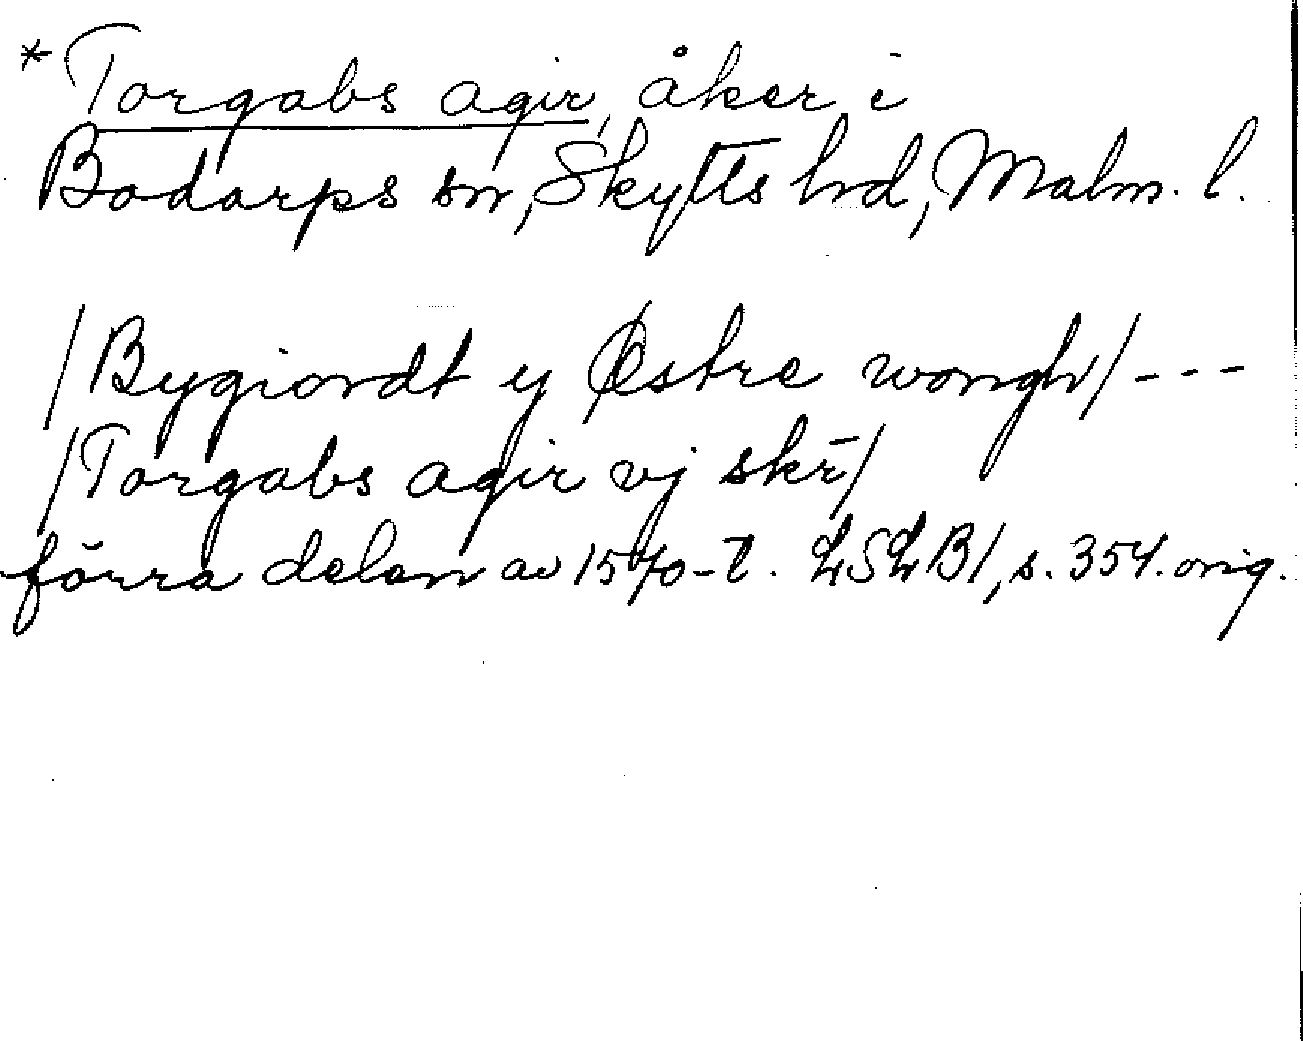 *Torgabs agir, åker i
Bodarps sn, Skytts hd, Malm. l.
/Bygiordt y Østre wongh/ ---
/Torgabs agir vj skr̄/
förra delen av 1570-t. LSLB1, s. 354. orig.